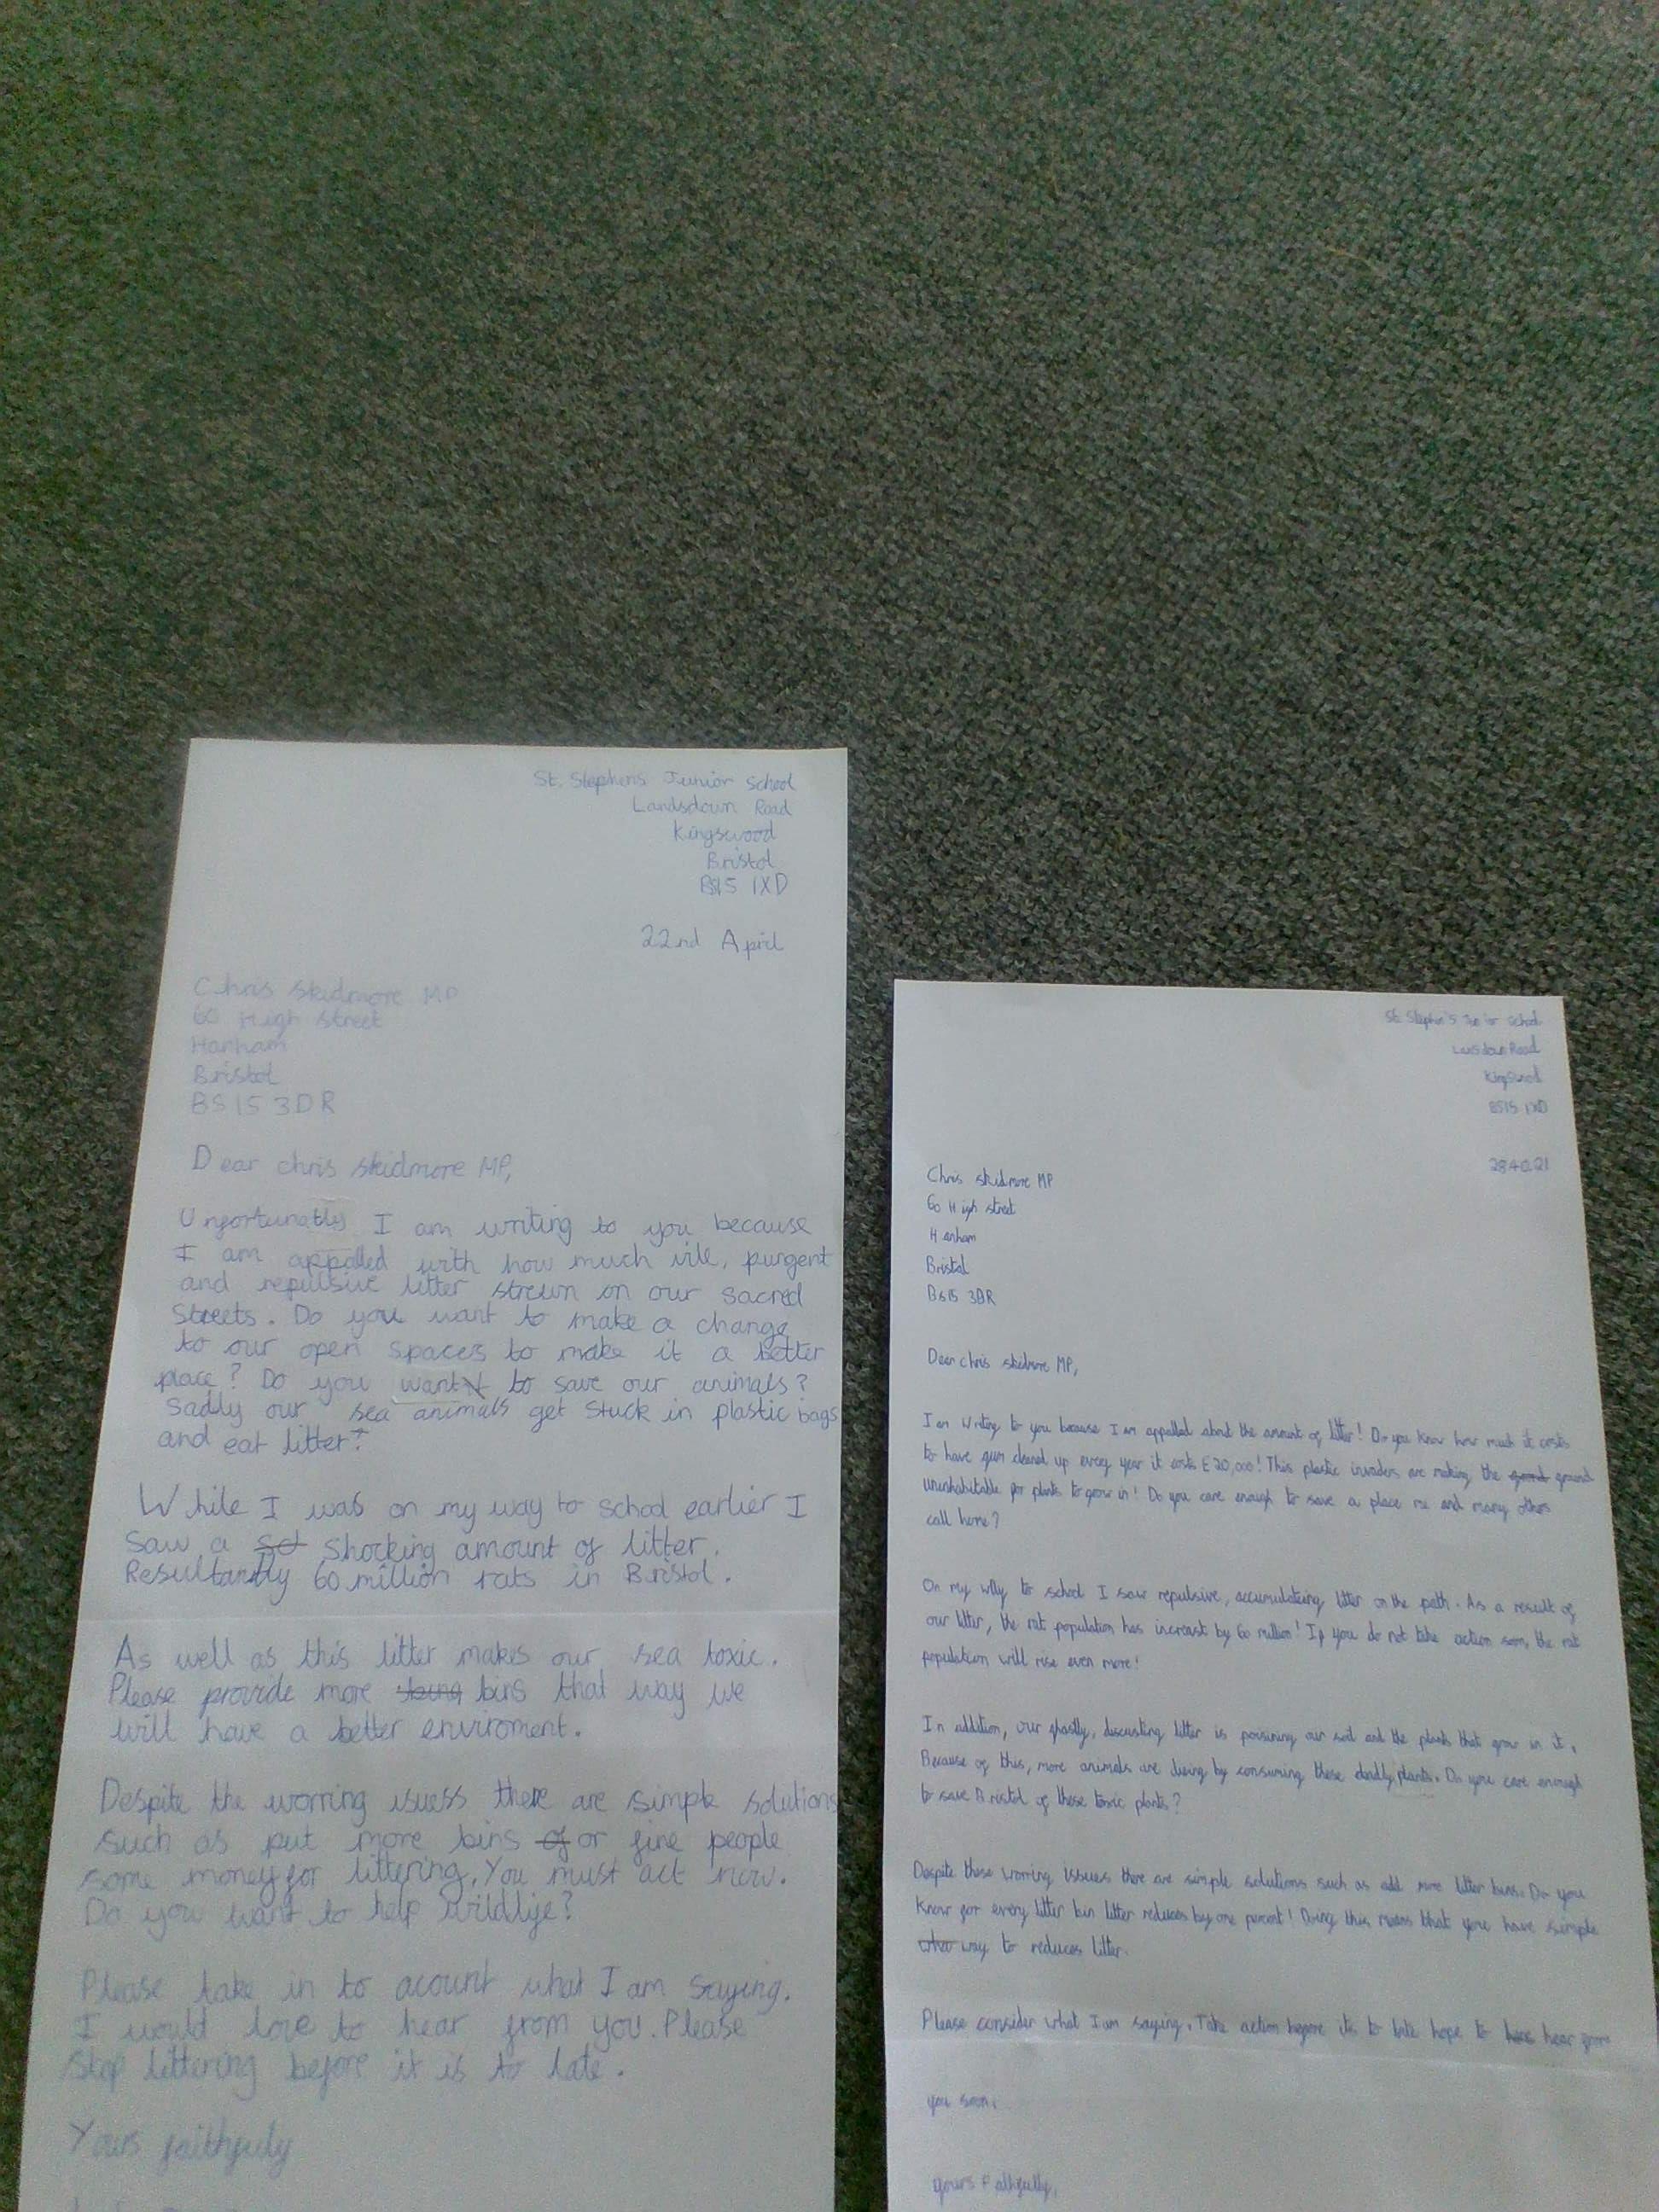 St. Stephens Junior School
Landsdown Road
Kingswood
Bristol
BS15 1XD
22nd April
Chris Skidmore MP
60 High Street
Hanham
Bristol
BS15 3DR
Dear Chris Skidmore MP,
Unfortunatley I am writing to you because
I am appalled with how much vile, purgent
and repulsive litter strewn on our sacred
Streets. Do you want to make a change
to our open spaces to make it a better
place? Do you want to save our animals?
Sadly our sea animals get stuck in plastic bags
and eat litter?
While I was on my way to school earlier I
saw a shocking amount of litter.
Resultantly 60 million rats in Bristol.
As well as this litter makes our sea toxic.
Please provide more bins that way we
will have a better enviroment.
Despite the worring isuess there are simple solutions
such as put more bins or fine people
some money for littering. You must act now.
Do you want to help wildlife?
Please take in to acount what I am saying.
I would love to hear from you. Please
stop littering before it is to late.
Yours faithfuly
St. Stephen's Junior School
Road
BS15 1XD
Chris Skidmore MP
60 High street
Hanham
Bristol
BS15 3DR
Dear Chris Skidmore MP,
I am writing to you because I am appalled about the amount of litter! Do you know how much it costs
to have gum cleaned up every year it costs £20,000! This plastic invaders are making the ground
uninhabitable for plants to grow in! Do you care enough to save a place me and many others
call home?
On my way to school I saw repulsive, accumulateing litter on the path. As a result of
our litter, the rat population has increast by 60 million! If you do not take action soon, the rat
population will rise even more!
In addition, our ghastly, discusting litter is poisining our soil and the plants that grow in it.
Because of this, more animals are dieing by consuming these deadly plants. Do you care enough
to save Bristol of these toxic plants?
Despite these worring issues there are simple solutions such as add more litter bins. Do you
know for every litter bin litter reduces by one percent! Doing this means that you have simple
way to reduces litter.
Please consider what I am saying. Take action before it's to late hope to hear from
you soon.
Yours Faithfully,